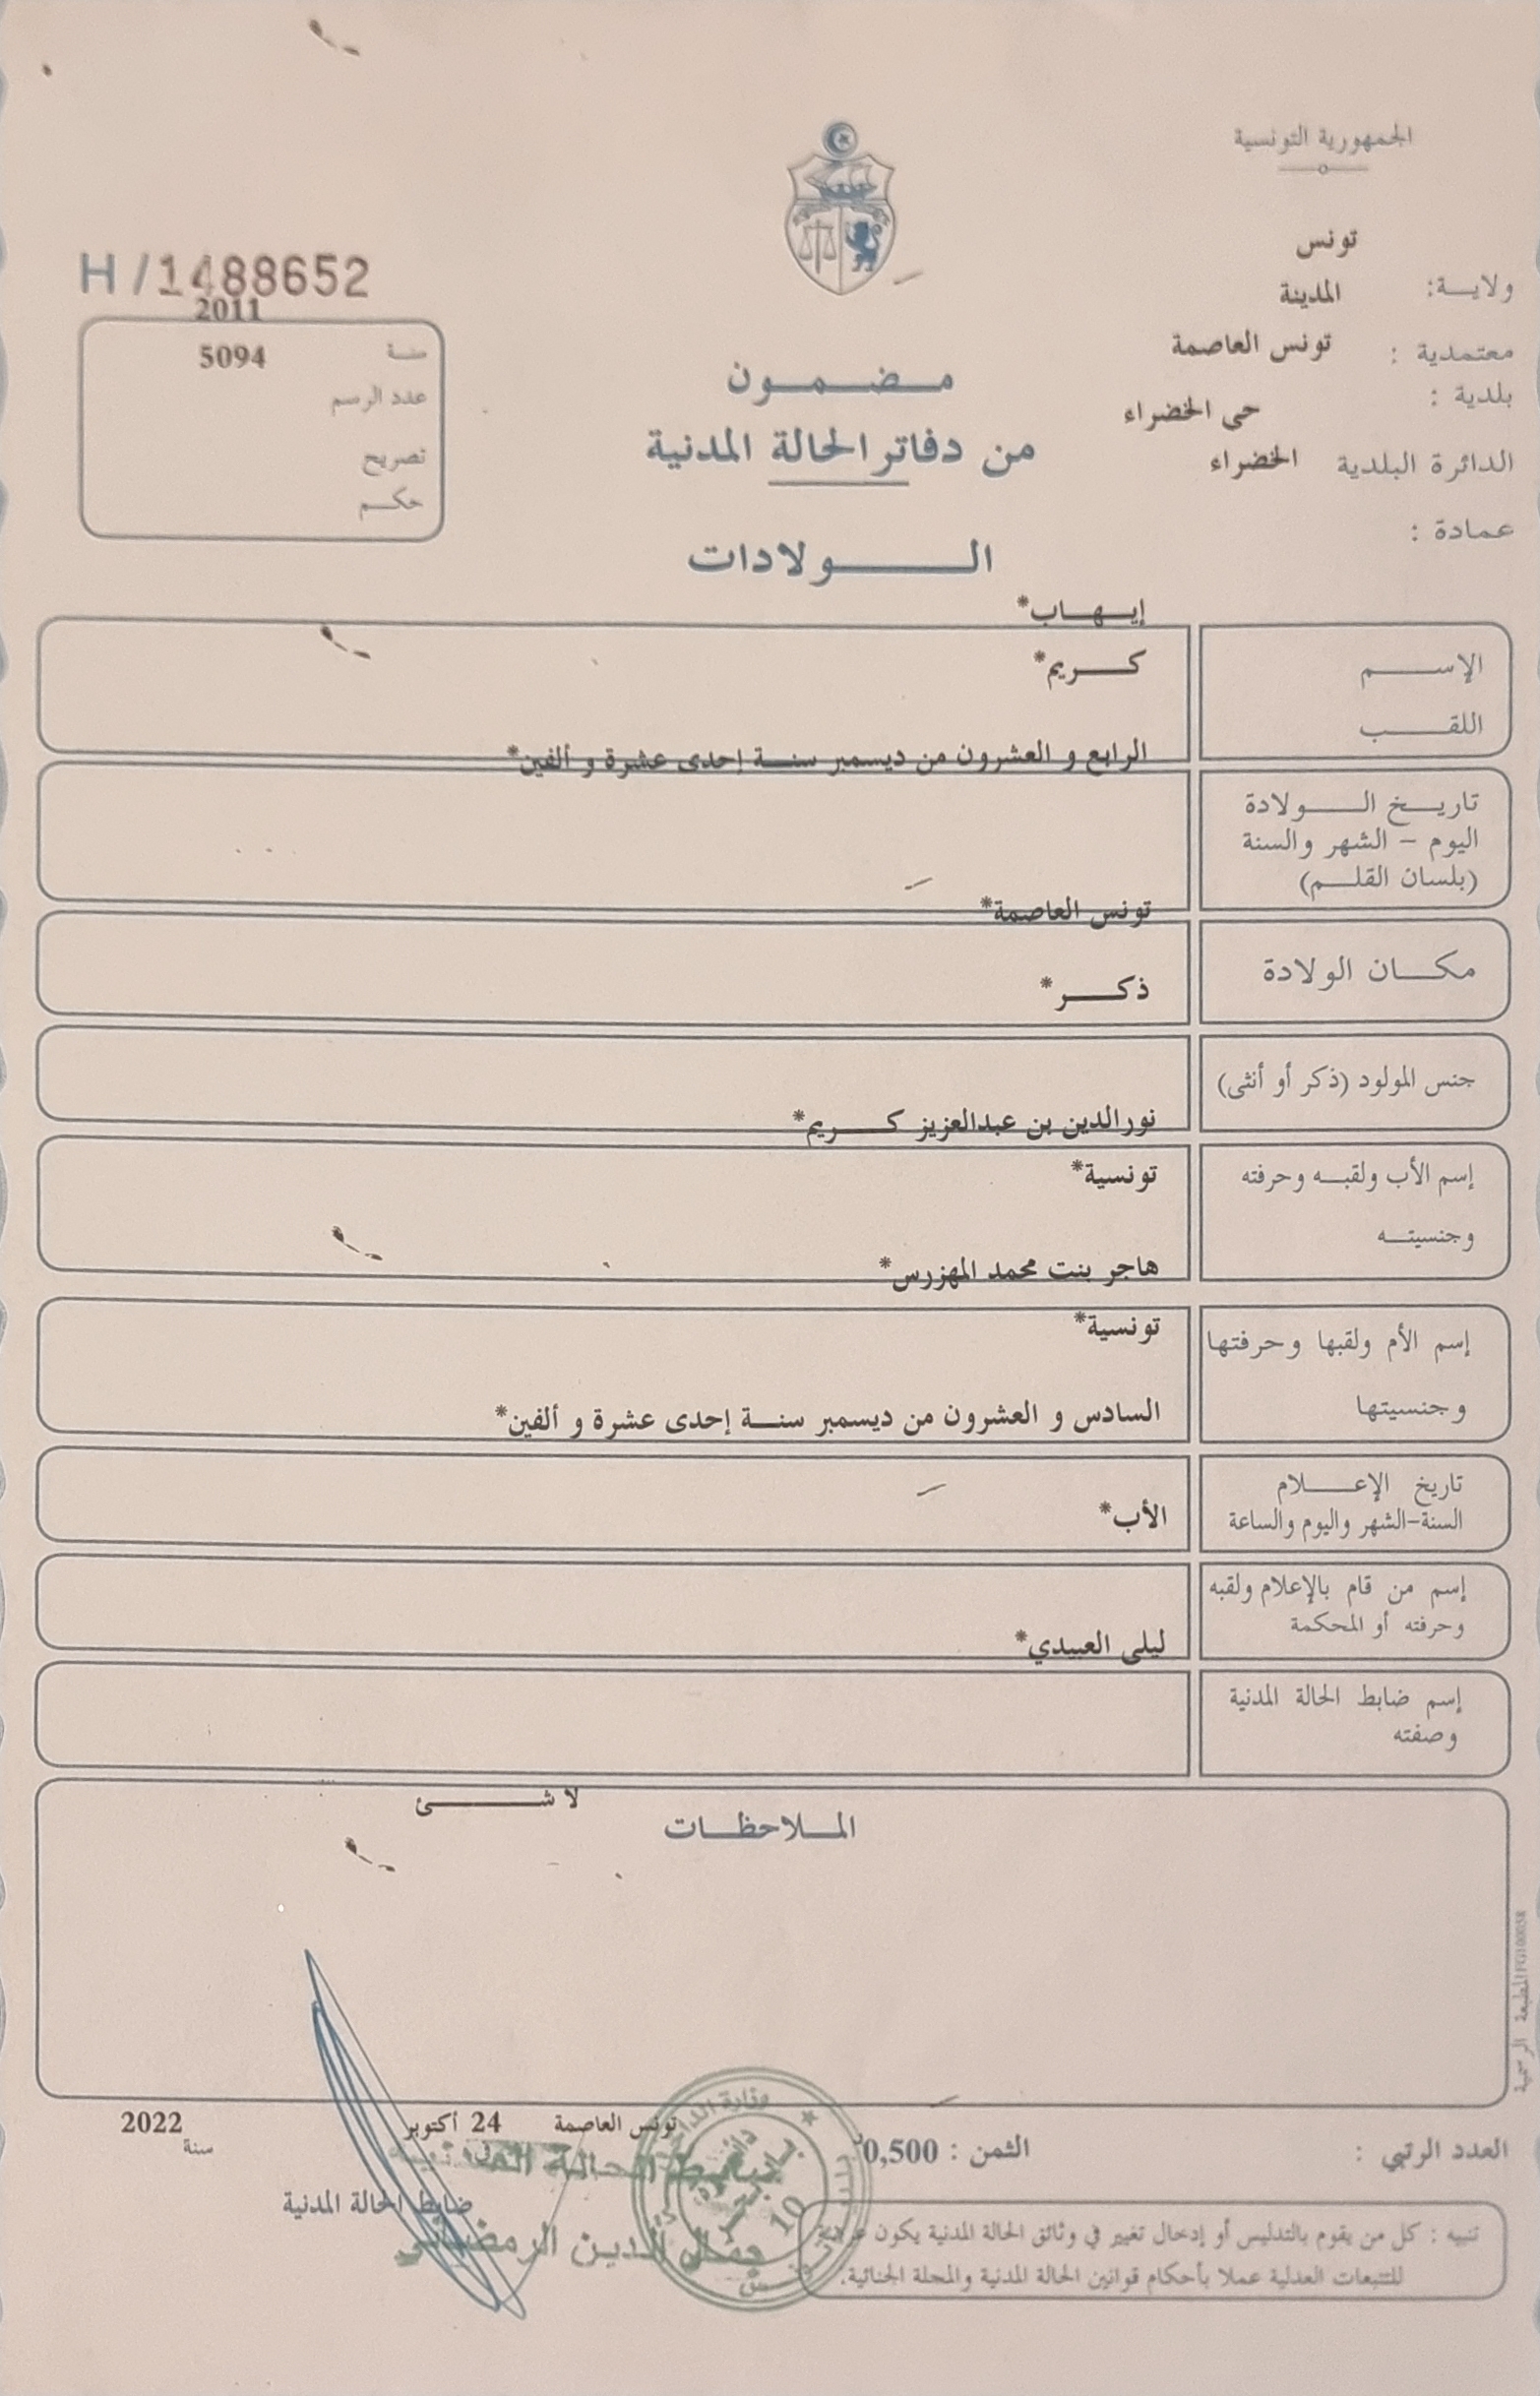 الجمهورية التونسية
تونس
ولايـــة:
المدينة
معتمدية :
تونس العاصمة
بلدية :
حي الخضراء
الدائرة البلدية
الخضراء
عمادة :
H/1488652
2011
سنة
5094
عدد الرسم
تصريح
حكـم
مـضـمـون
من دفاتر الحالة المدنية
الـــولادات
إيـهـاب*
الإســـم
كـــريم*
اللقـــب
الرابع و العشرون من ديسمبر سنـة إحدى عشرة و ألفين*
تاريـخ الـــولادة
اليوم - الشهر والسنة
(بلسان القلـم)
تونس العاصمة*
مكـان الولادة
ذكـــر*
جنس المولود (ذكر أو أنثى)
نورالدين بن عبدالعزيز كـــريم*
إسم الأب ولقبـه وحرفته
تونسية*
وجنسيتـه
هاجر بنت محمد المهزرس*
تونسية*
إسم الأم ولقبها وحرفتها
وجنسيتها
السادس و العشرون من ديسمبر سنـة إحدى عشرة و ألفين*
تاريخ الإعـــلام
السنة-الشهر واليوم والساعة
الأب*
إسم من قام بالإعلام ولقبه
وحرفته أو المحكمة
ليلى العبيدي*
إسم ضابط الحالة المدنية
وصفته
لا شـــئ
المـلاحظـات
المطبعة الرسمية
العدد الرتبي :
الثمن : 0,500د
تونس العاصمة
24 أكتوبر
سنة
2022
ضابط الحالة المدنية
ضابط الحالة المدنية
جمال الدين الرمضاني
10
تنبيه : كل من يقوم بالتدليس أو إدخال تغيير في وثائق الحالة المدنية يكون عرضة
للتتبعات العدلية عملا بأحكام قوانين الحالة المدنية والمجلة الجنائية.